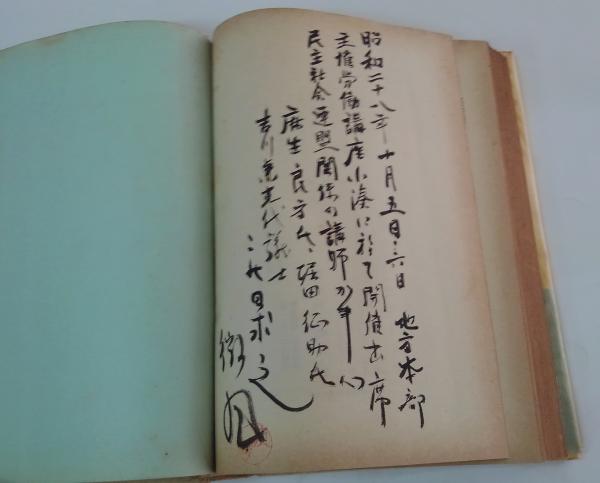 昭和二十八年十月五日・六日 地方本部
主催労働講座小湊に於て開催出席
民主社会連盟関係の講師
麻生良方氏、堀田征助氏
吉川兼光代議士
求之